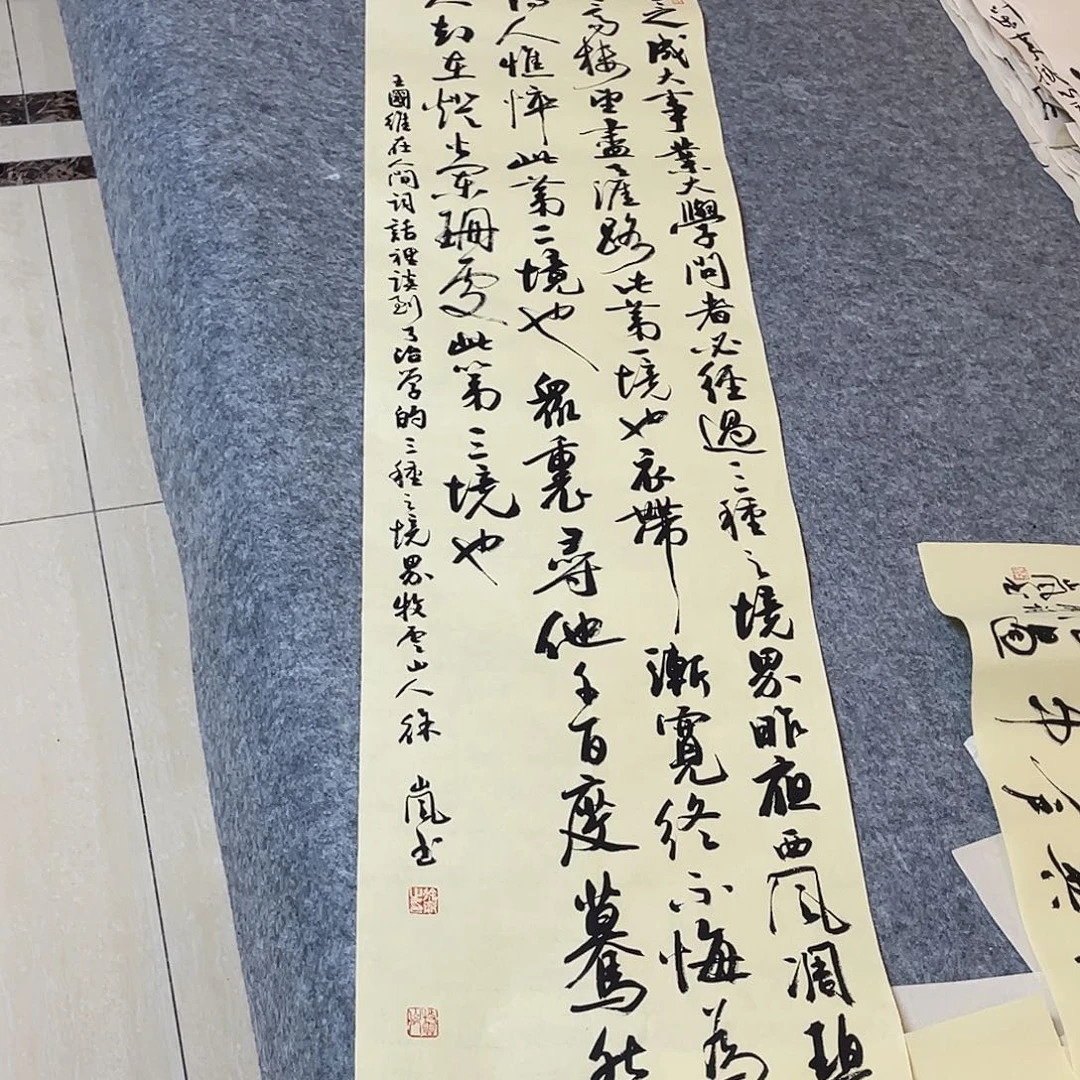 之成大事業大學問者必經過三種之境界昨夜西風凋碧
高樓望盡天涯路此第一境也衣帶漸寬終不悔為
得人憔悴此第二境也眾裏尋他千百度驀然
人却在燈火闌珊處此第三境也
王國維在人間詞話裡談到了治学的三種之境界牧雲山人徐嵐书